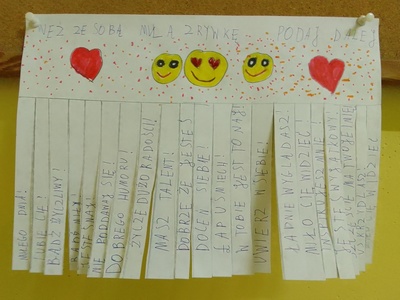 WEŹ ZE SOBĄ MIŁĄ ZRYWKĘ PODAJ DALEJ
MIŁEGO DNIA!
LUBIĘ CIĘ!
BĄDŹ ŻYCZLIWY!
JESTEŚ
NIE PODDAWAJ SIĘ!
DOBREGO HUMORU!
ŻYCZĘ DUŻO RADOŚCI!
MASZ TALENT!
DOBRZE ŻE JESTEŚ
DOCEŃ SIEBIE!
ŁAP UŚMIECH!
W TOBIE JEST TO
UWIERZ W SIEBIE!
ŁADNIE WYGLĄDASZ!
MIŁO CIĘ WIDZIEĆ!
INTRYGUJESZ MNIE!
JESTEŚ WYJĄTKOWY!